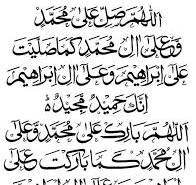 اللهم صل على محمد
وعلى ال محمد كما صليت
على إبراهيم وعلى ال إبراهيم
إنك حميد مجيد
اللهم بارك على محمد وعلى
ال محمد كما باركت على